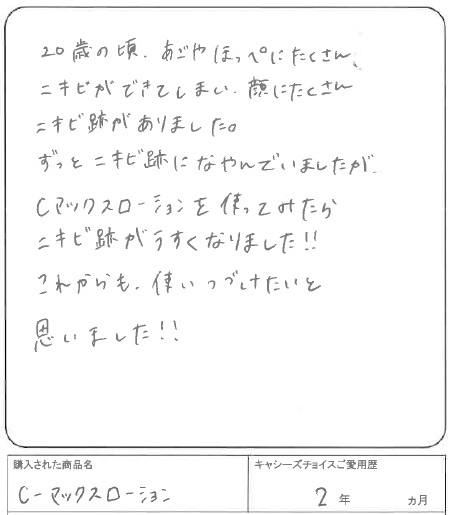 20歳の頃、あごやほっぺにたくさん、
ニキビができてしまい、顔にたくさん
ニキビ跡がありました。
ずっとニキビ跡になやんでいましたが、
Cマックスローションを使ってみたら
ニキビ跡がうすくなりました!!
これからも、使いつづけたいと
思いました!!
購入された商品名
C-マックスローション
キャシーズチョイスご愛用歴
2年 ヵ月